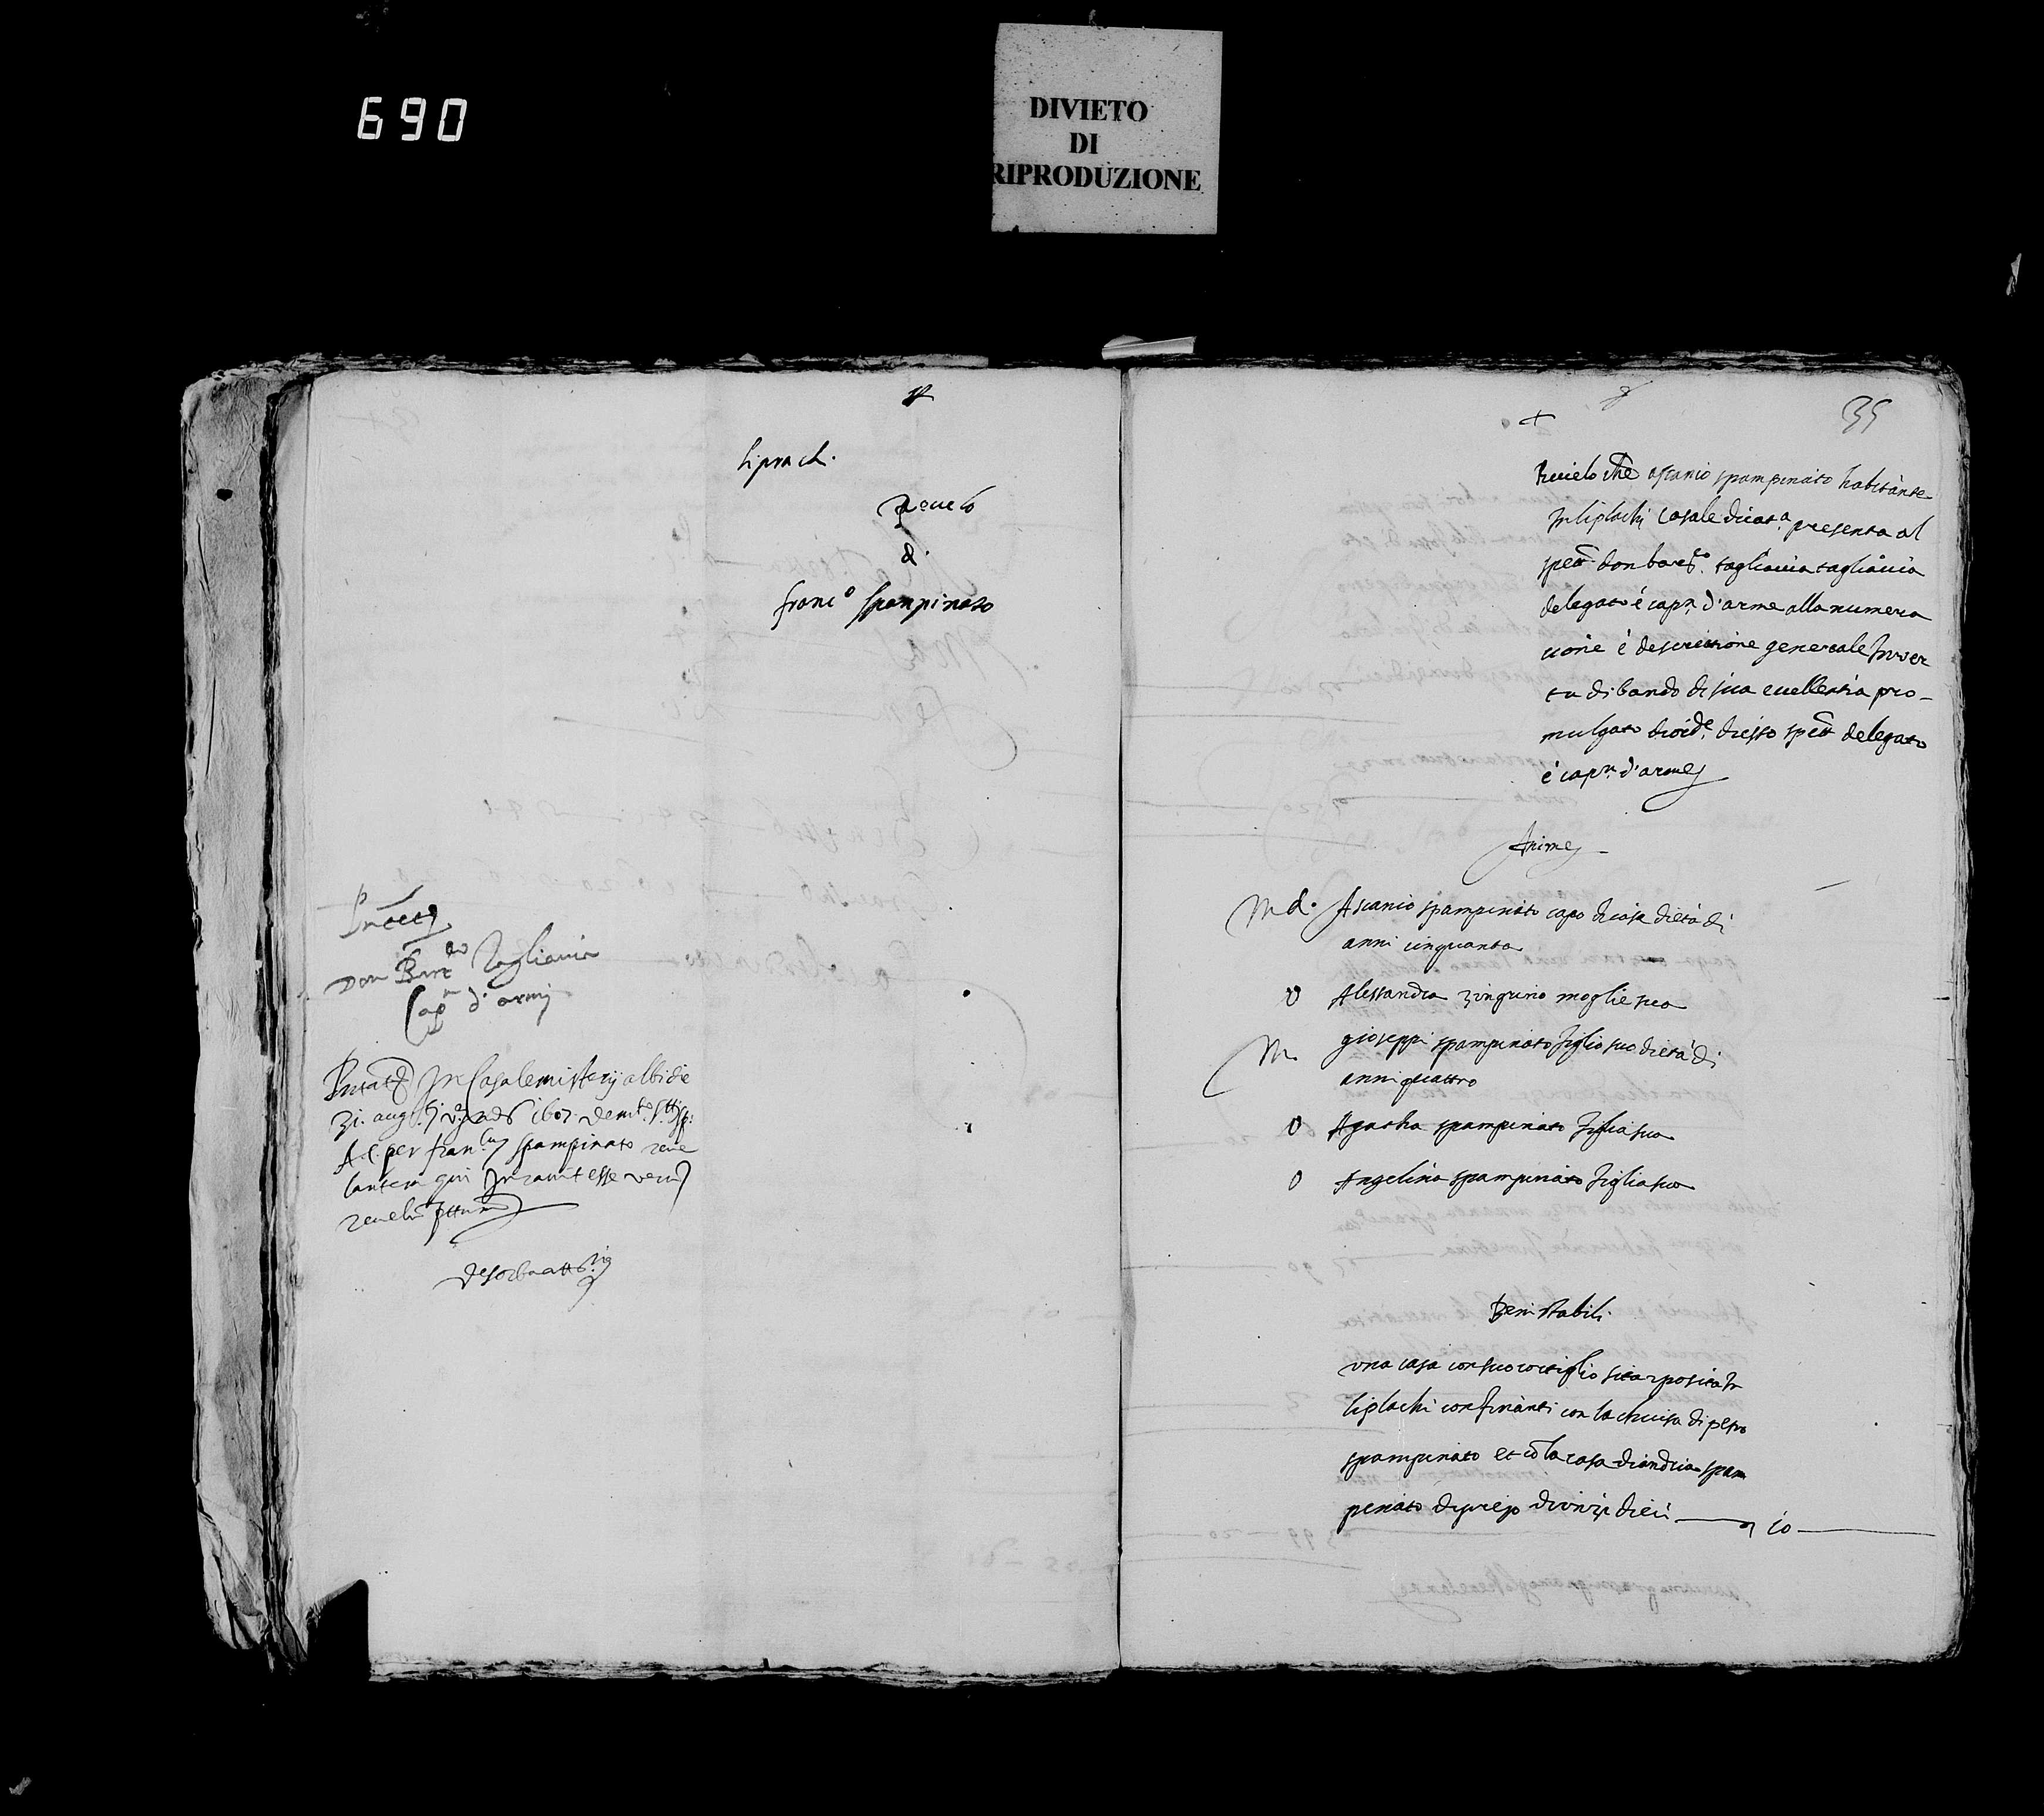 690
DIVIETO
DI
RIPRODUZIONE
liplachi
Revelo
di
franc.o spampinato
Don Bart.do Tagliavia
Cap.n d'armi
In Casale misterij albi die
31. aug.ti 1607
per spampinato reve
lantem qui Juravit esse verum
revelum
+
35
Rivielo che ascanio spampinato habitante
In liplachi casale di cat.a presenta al
spett. don tagliavia tagliavia
delegato é cap.n d'arme alla numera
cione é descrittione generale In ver
tu di bando di sua eccellentia pro-
mulgato d'ord.e di esso spett. delegato
é cap.n d'arme
Anime
M d. Ascanio spampinato capo di casa di età di
anni cinquanta
0 Alessandra zingrino moglie sua
M. gioseppi spampinato figlio suo di età di
anni quattro
0 Agatha spampinato figlia sua
0 Angelina spampinato figlia sua
Beni stabili
una casa con suo cortiglio sita e posita In
liplachi confinanti con la chiusa di petro
spampinato et co la casa di andria spam
pinato di prejo di unzi dieci — 10 —